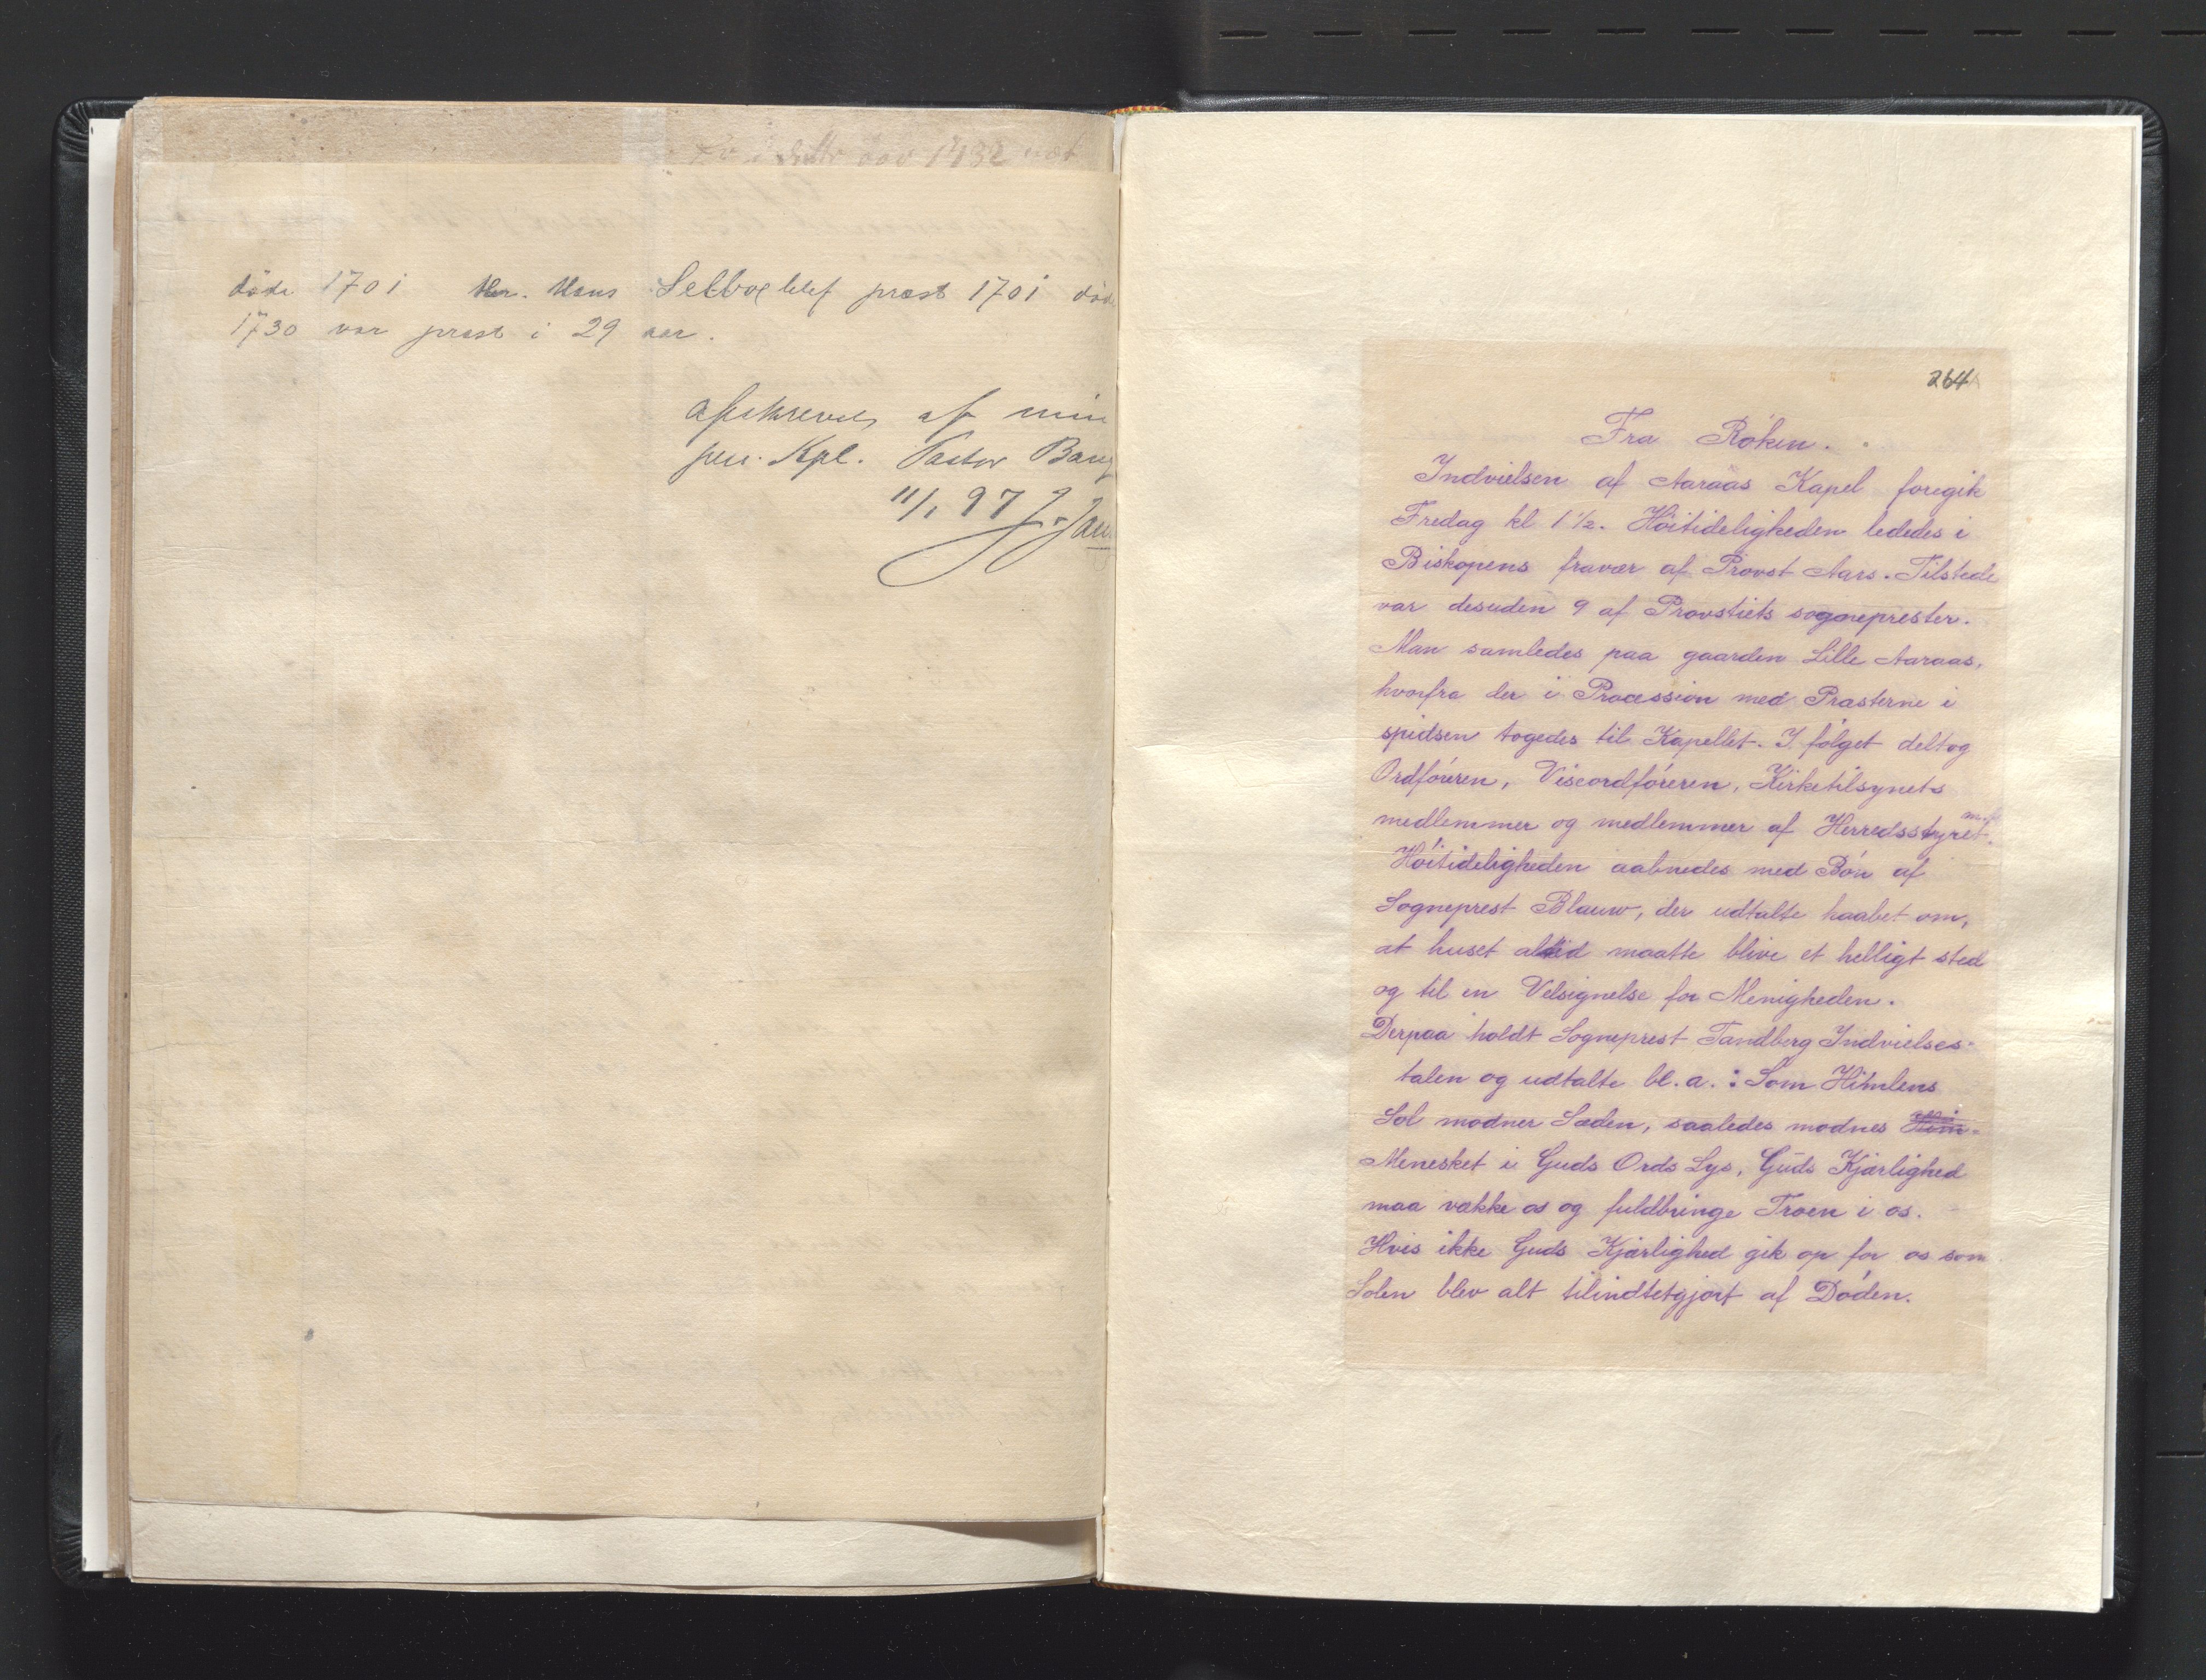 døde 1701 Hr. Hans Selboe blef præst 1701 død
1730 var præst i 29 aar.
afskrevet af min
pers. Kpl. Pastor Bang
11/1 97 J. Jan
264
Fra Røken.
Indvielsen af Aaraas Kapel foregik
Fredag kl 1 1/2. Høitideligheden lededes i
Biskopens fravær af Provst Aars. Tilstede
var desuden 9 af Provstiets sogneprester.
Man samledes paa gaarden Lille Aaraas,
hvorfra der i Procession med Præsterne i
spidsen togedes til Kapellet. I følget deltog
Ordføreren, Viseordføreren, Kirketilsynets
medlemmer og medlemmer af Herredsstyret m.fl.
Høitideligheden aabnedes med Bøn af
Sogneprest Blauw, der udtalte haabet om,
at huset altid maatte blive et helligt sted
og til en Velsignelse for Menigheden.
Derpaa holdt Sogneprest Tandberg Indvielses-
talen og udtalte bl. a. : Som Himlens
Sol modner Sæden, saaledes modnes Him-
Menesket i Guds Ords Lys, Guds Kjærlighed
maa vække os og fuldbringe Troen i os.
Hvis ikke Guds Kjærlighed gik op for os som
Solen blev alt tilindtetgjort af Døden.